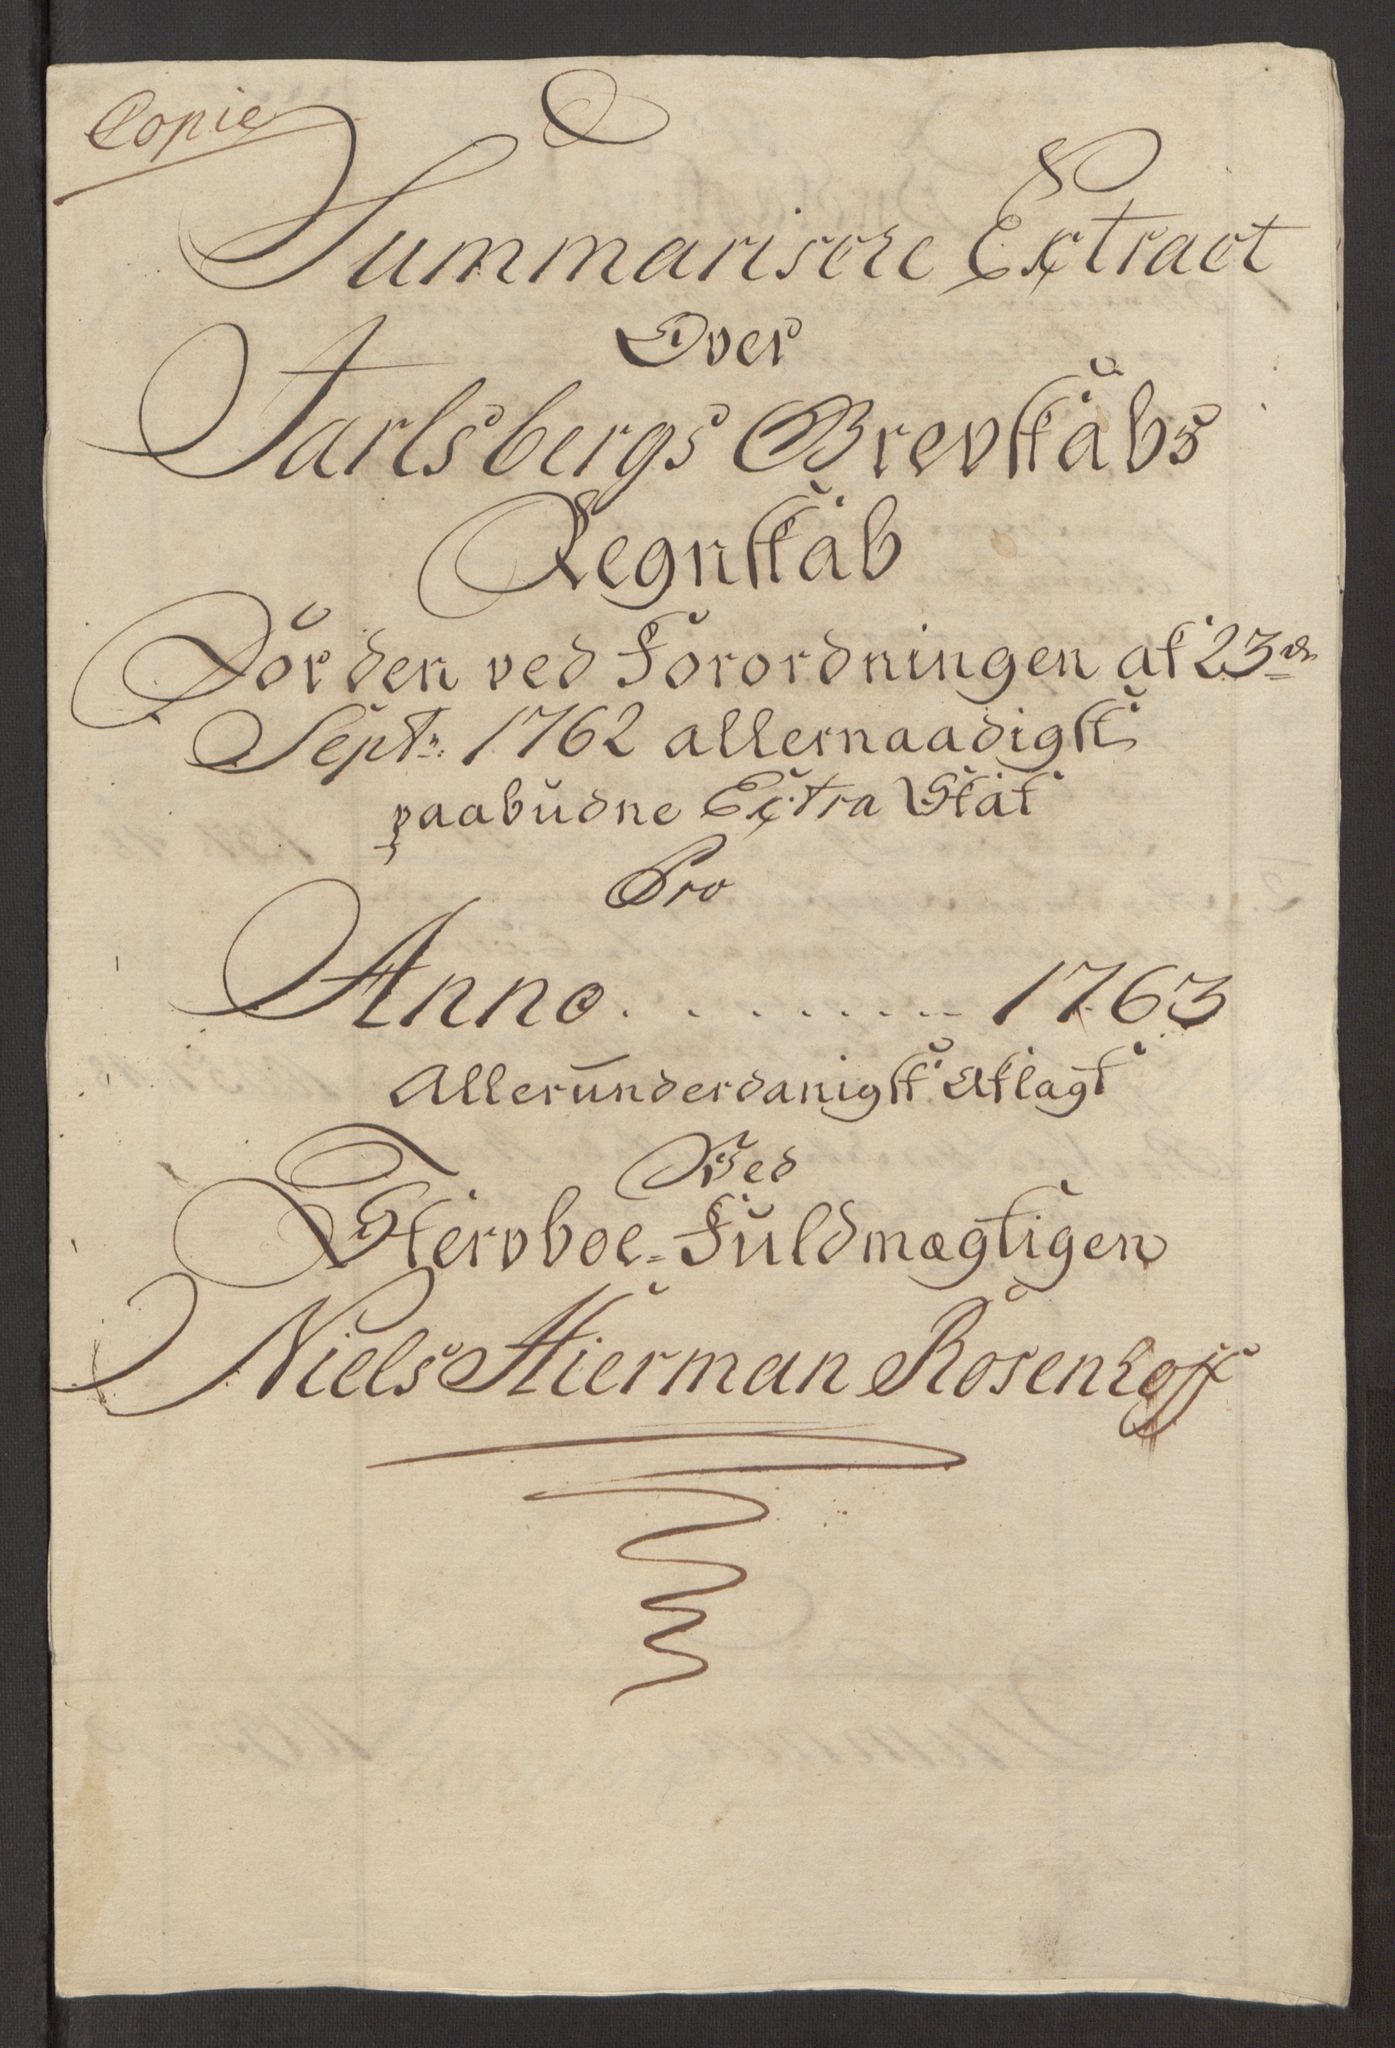 Copie
Summariske Extract
Over
Jarlsbergs Grevskabs
Regnskab
For den ved Forordningen af 23de
Septr. 1762 allernaadigst
paabudne Extra Skat
Pro
Anno . . . . . . . . . 1763
Allerunderdanigst Aflagt
Ved
Stervboe-Fuldmægtigen
Niels Hierman Rosenhoff